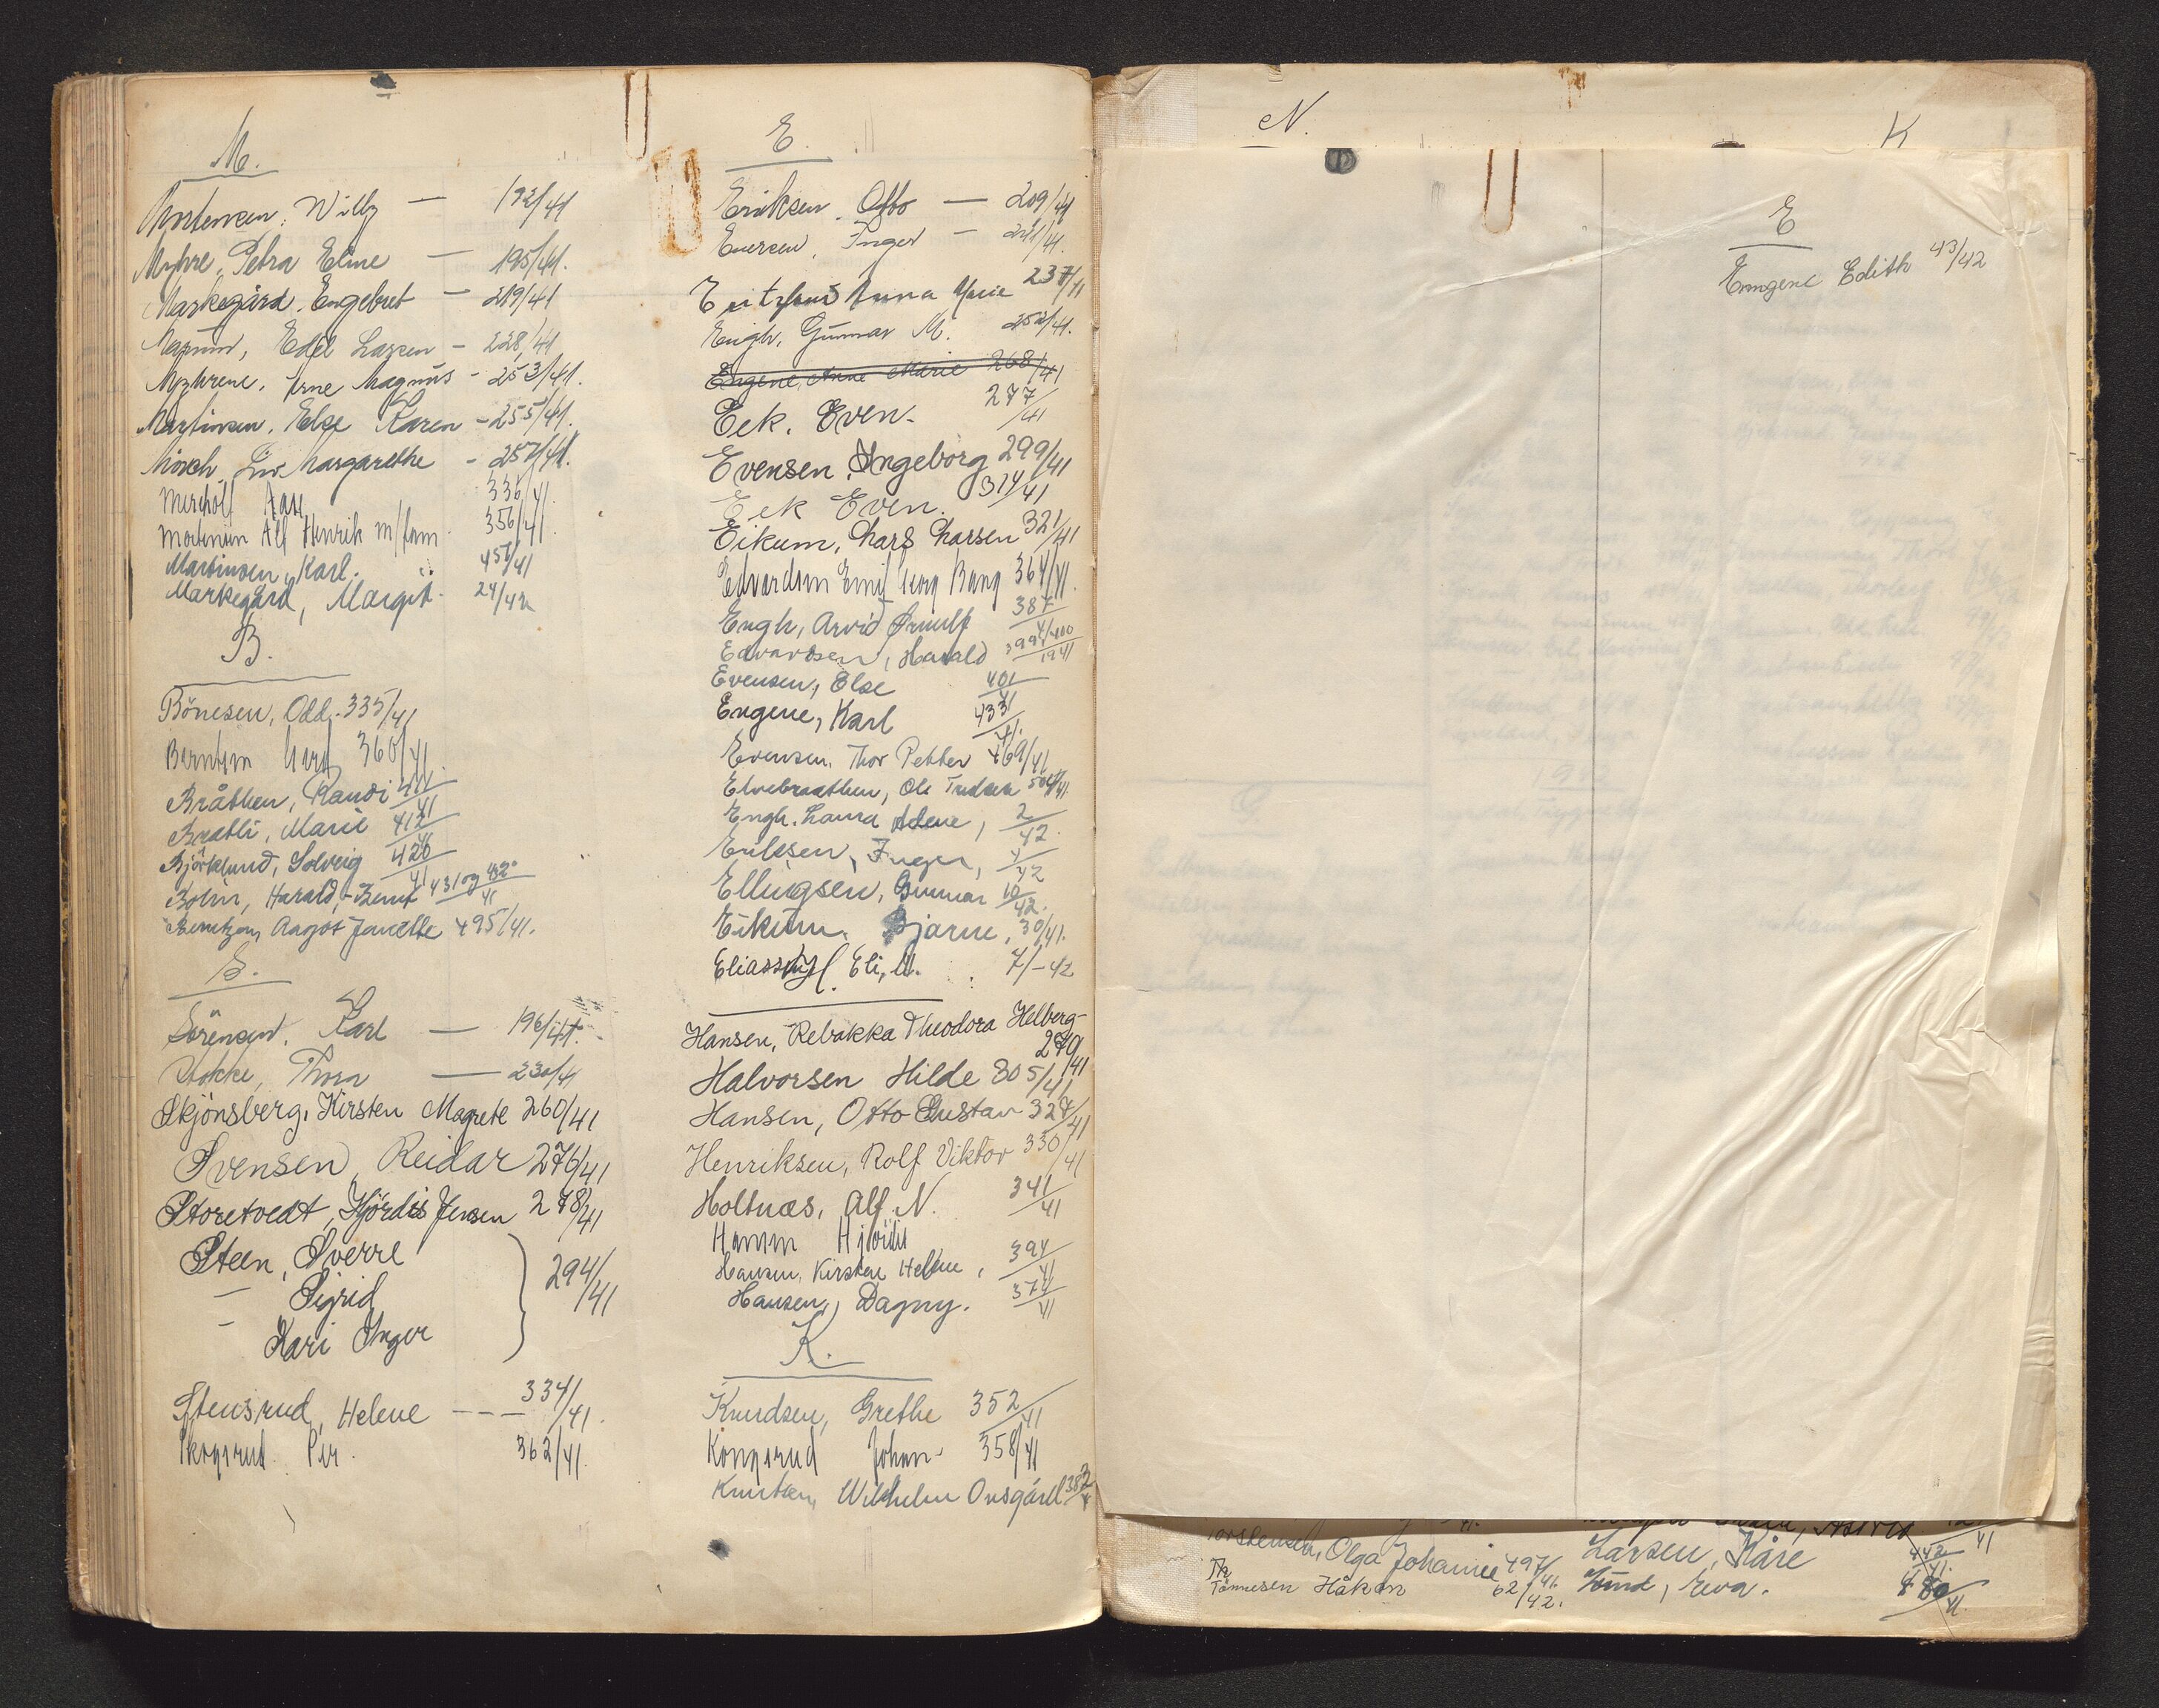 M.
Mortensen, Willy — 192/41
Myhre, Petra Eline — 195/41.
Markegård, Engebret — 219/41
Edel Larsen - 228/41
Myhrene, Arne Magnus - 253/41.
Martinsen, Else Karen - 255/41.
Liv Margarethe - 257/41.
Aase 336/41.
Alf Henrik m/fam. 356/41.
Martinsen, Karl. 451/41
Markegård, Margit. 24/42
B.
Bönesen, Odd. 335/41
Berntsen 360/41.
Bråthen, Randi 411/41
Bratli, Marie 412/41
Björklund, Solveig 420/41
Bolin, Harald, - Bernt 431 og 432/41
Aagot 495/41.
S.
Sörensen, Karl — 196/41.
Stokke, Thora — 230/41
Skjönsberg, Kirsten Magrete 260/41
Svensen, Reidar 276/41
Storetvedt, Hjördis Jensen 278/41
Steen, Sverre
— Sigrid 294/41
— Kari Inger
Stensrud, Helene --- 334/41.
Skogsrud Per. 362/41.
E.
Eriksen, Otto — 209/41
Inger —
Anna Marie 237/41
Engh, Gunnar M. 252/41.
Engene, Anne Marie 268/41
Eek, Even. 277/41
Evensen, Ingeborg 299/41
Eek Even. 314/41
Eikum, Lars Larsen 321/41
Edvardsen Emil Georg Bang 364/41.
Engh, Arvid Ørnulf 387/41
Edvardsen, Harald 399/400/1941
Evensen, Else 401/41
Engene, Karl 433/41.
Evensen, Thor Petter 469/41
Elvebraathen, Ole 504/41
Engh, Laura Helene, 2/42.
Eriksen, Inger, 4/42
Ellingsen, Gunnar 10/42.
Eikum, Bjarne, 30/41.
Eli, M. 7/-42
Hansen, Rebakka Theodora Helberg-
270/41
Halvorsen Hilde 305/41
Hansen, Otto Gustav 327/41
Henriksen, Rolf Viktor 330/41
Holtnæs, Alf N. 341/41
Hamm Hjördis
Hansen, Kirsten Helene, 394/41
Hansen, Dagny. 374/41
K.
Knudsen, Grethe 352/41
Kongsrud Johan 358/41
Knutsen, Wilhelm Onsgård 383/41
N.
K
E
Engene Edith 43/42
Torstensen, Olga Johanne 497/41.
Th
Tønnesen Håkon 62/42.
Larsen, Kåre 442/41.
Lund, Eva. 480/41.